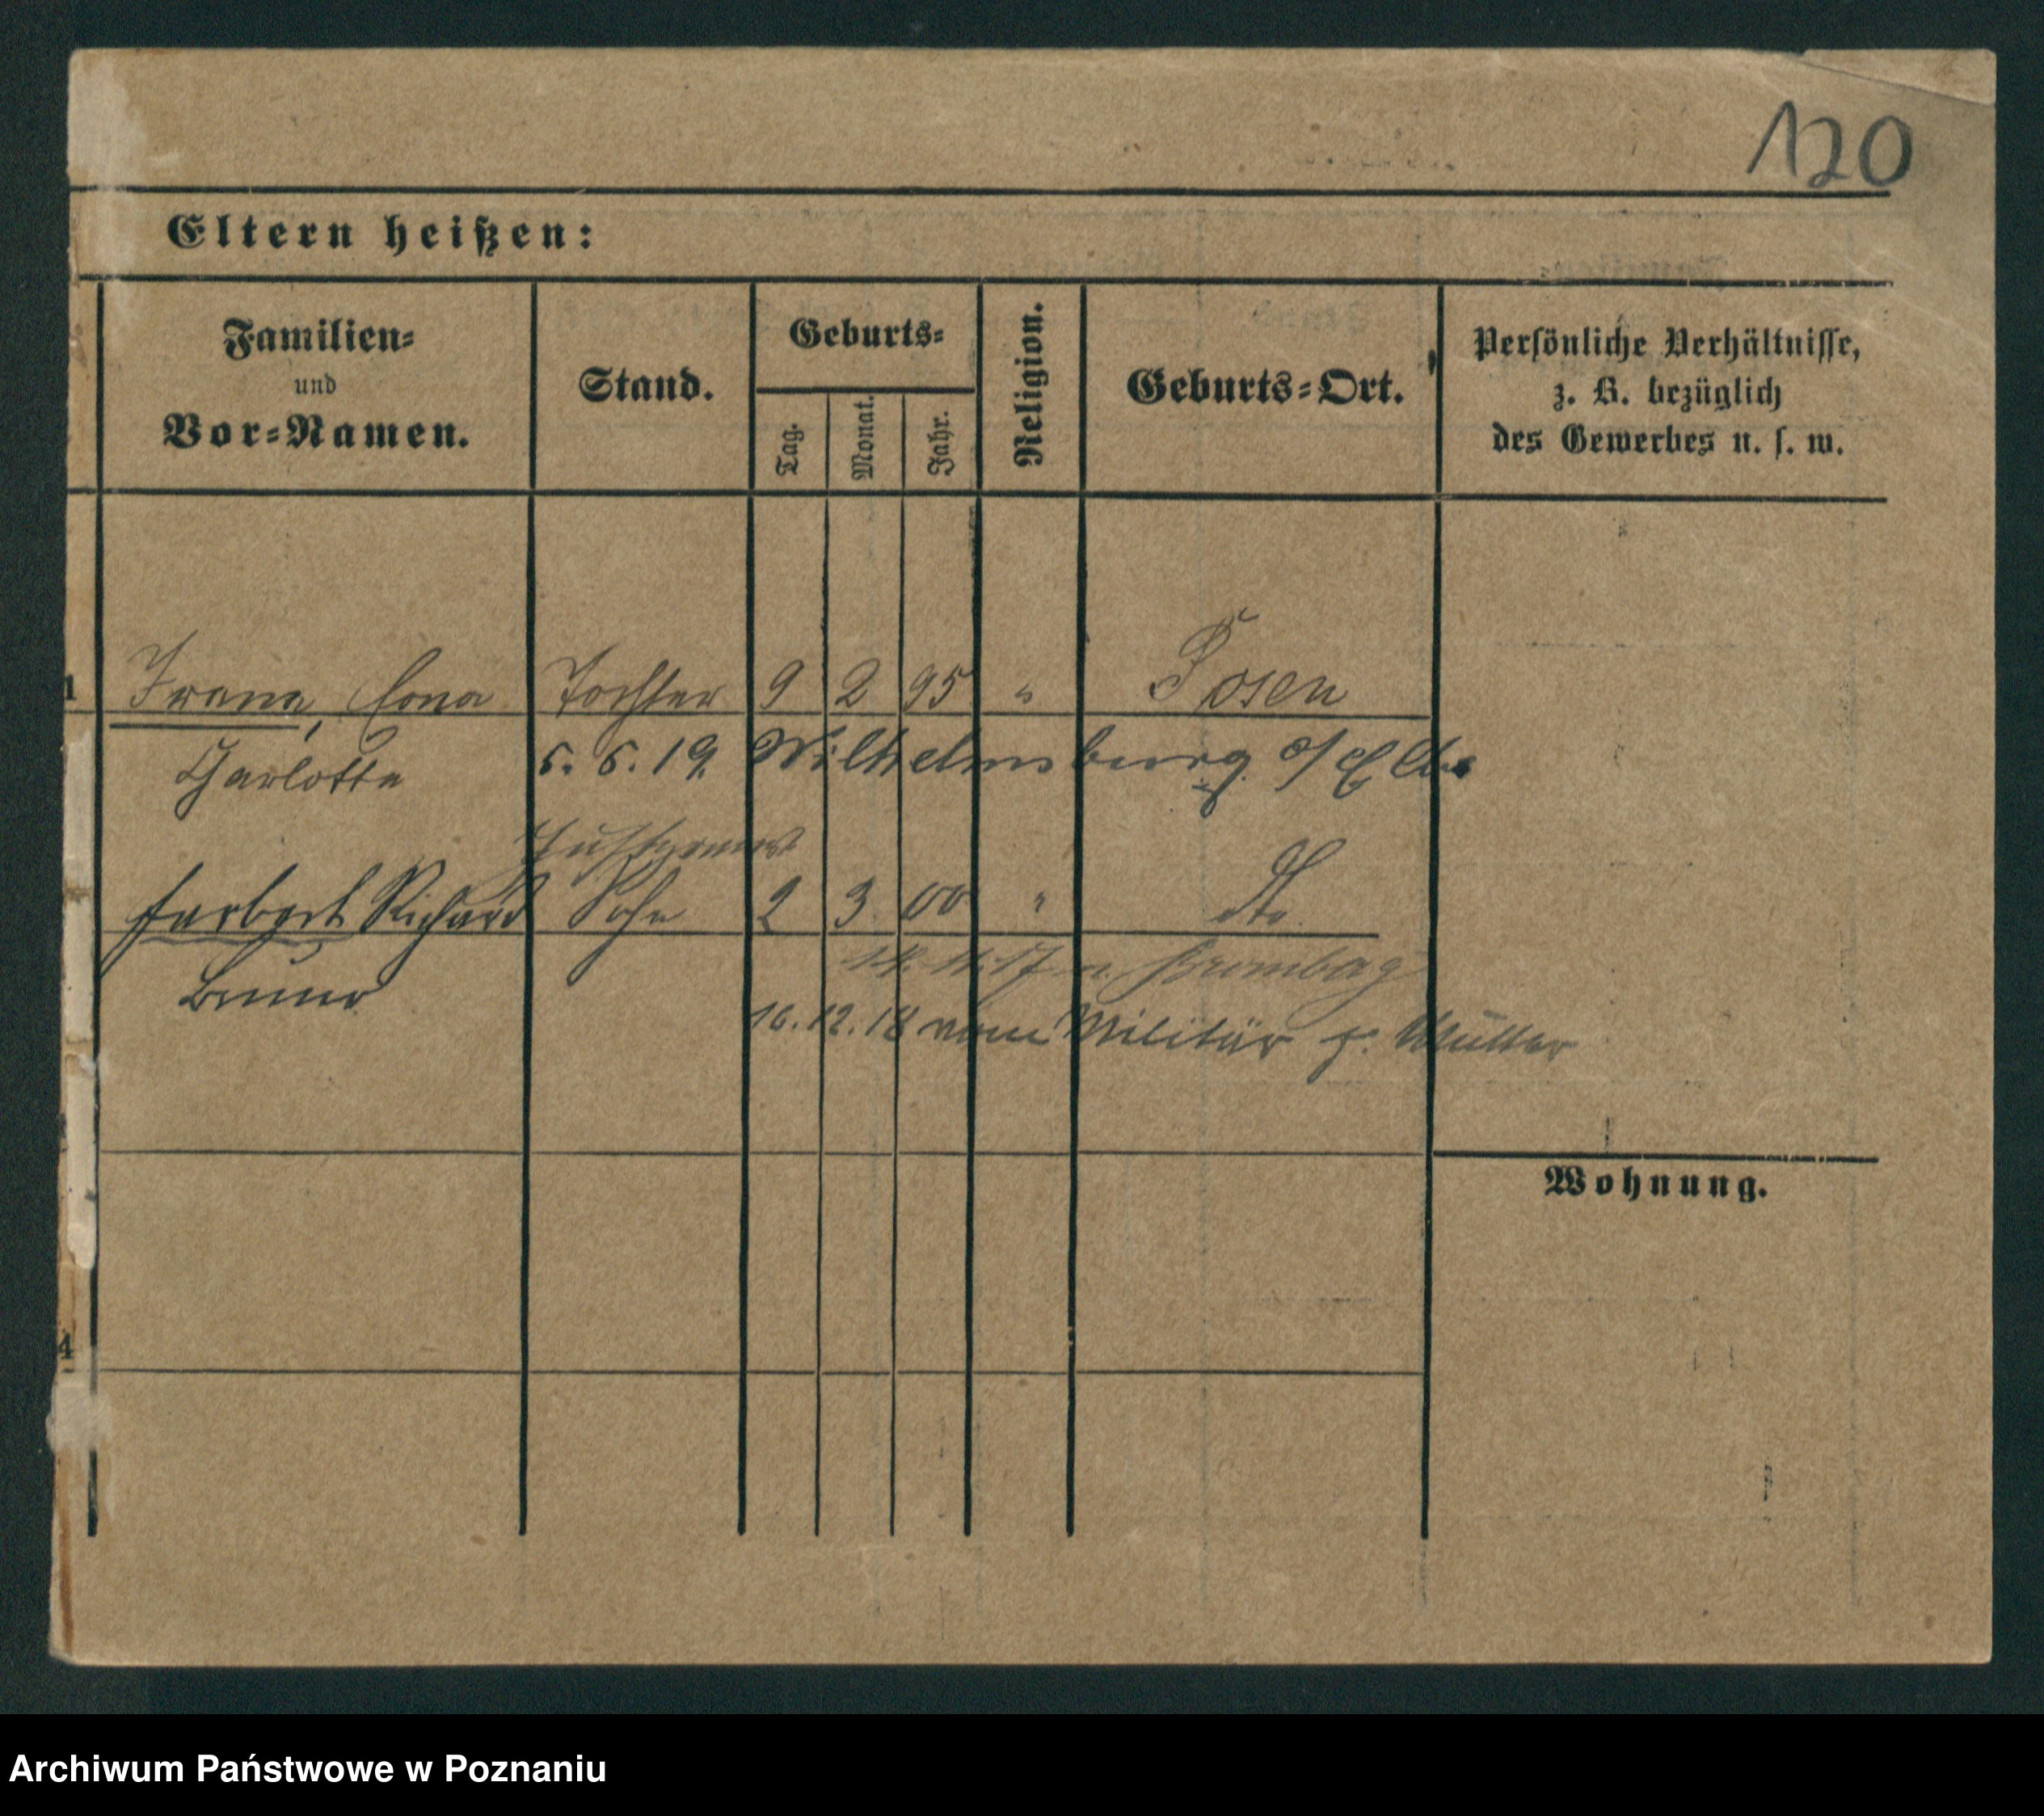 120
Eltern heißen:
Familien- und Vor-Namen.
Stand.
Geburts-
Tag.
Monat.
Jahr.
Religion.
Geburts-Ort.
Persönliche Verhältnisse,
z. B. bezüglich
des Gewerbes u. s. w.
1 Tochter 9 2 95 " Posen
Charlotte
5. 5. 19. Wilhelmsburg a/Elbe
Herbert Richard Sohn 2 3 00 " dto.
Bruno
Bromberg
16.12.18 vom Militär z. Mutter
Wohnung.
4
Archiwum Państwowe w Poznaniu